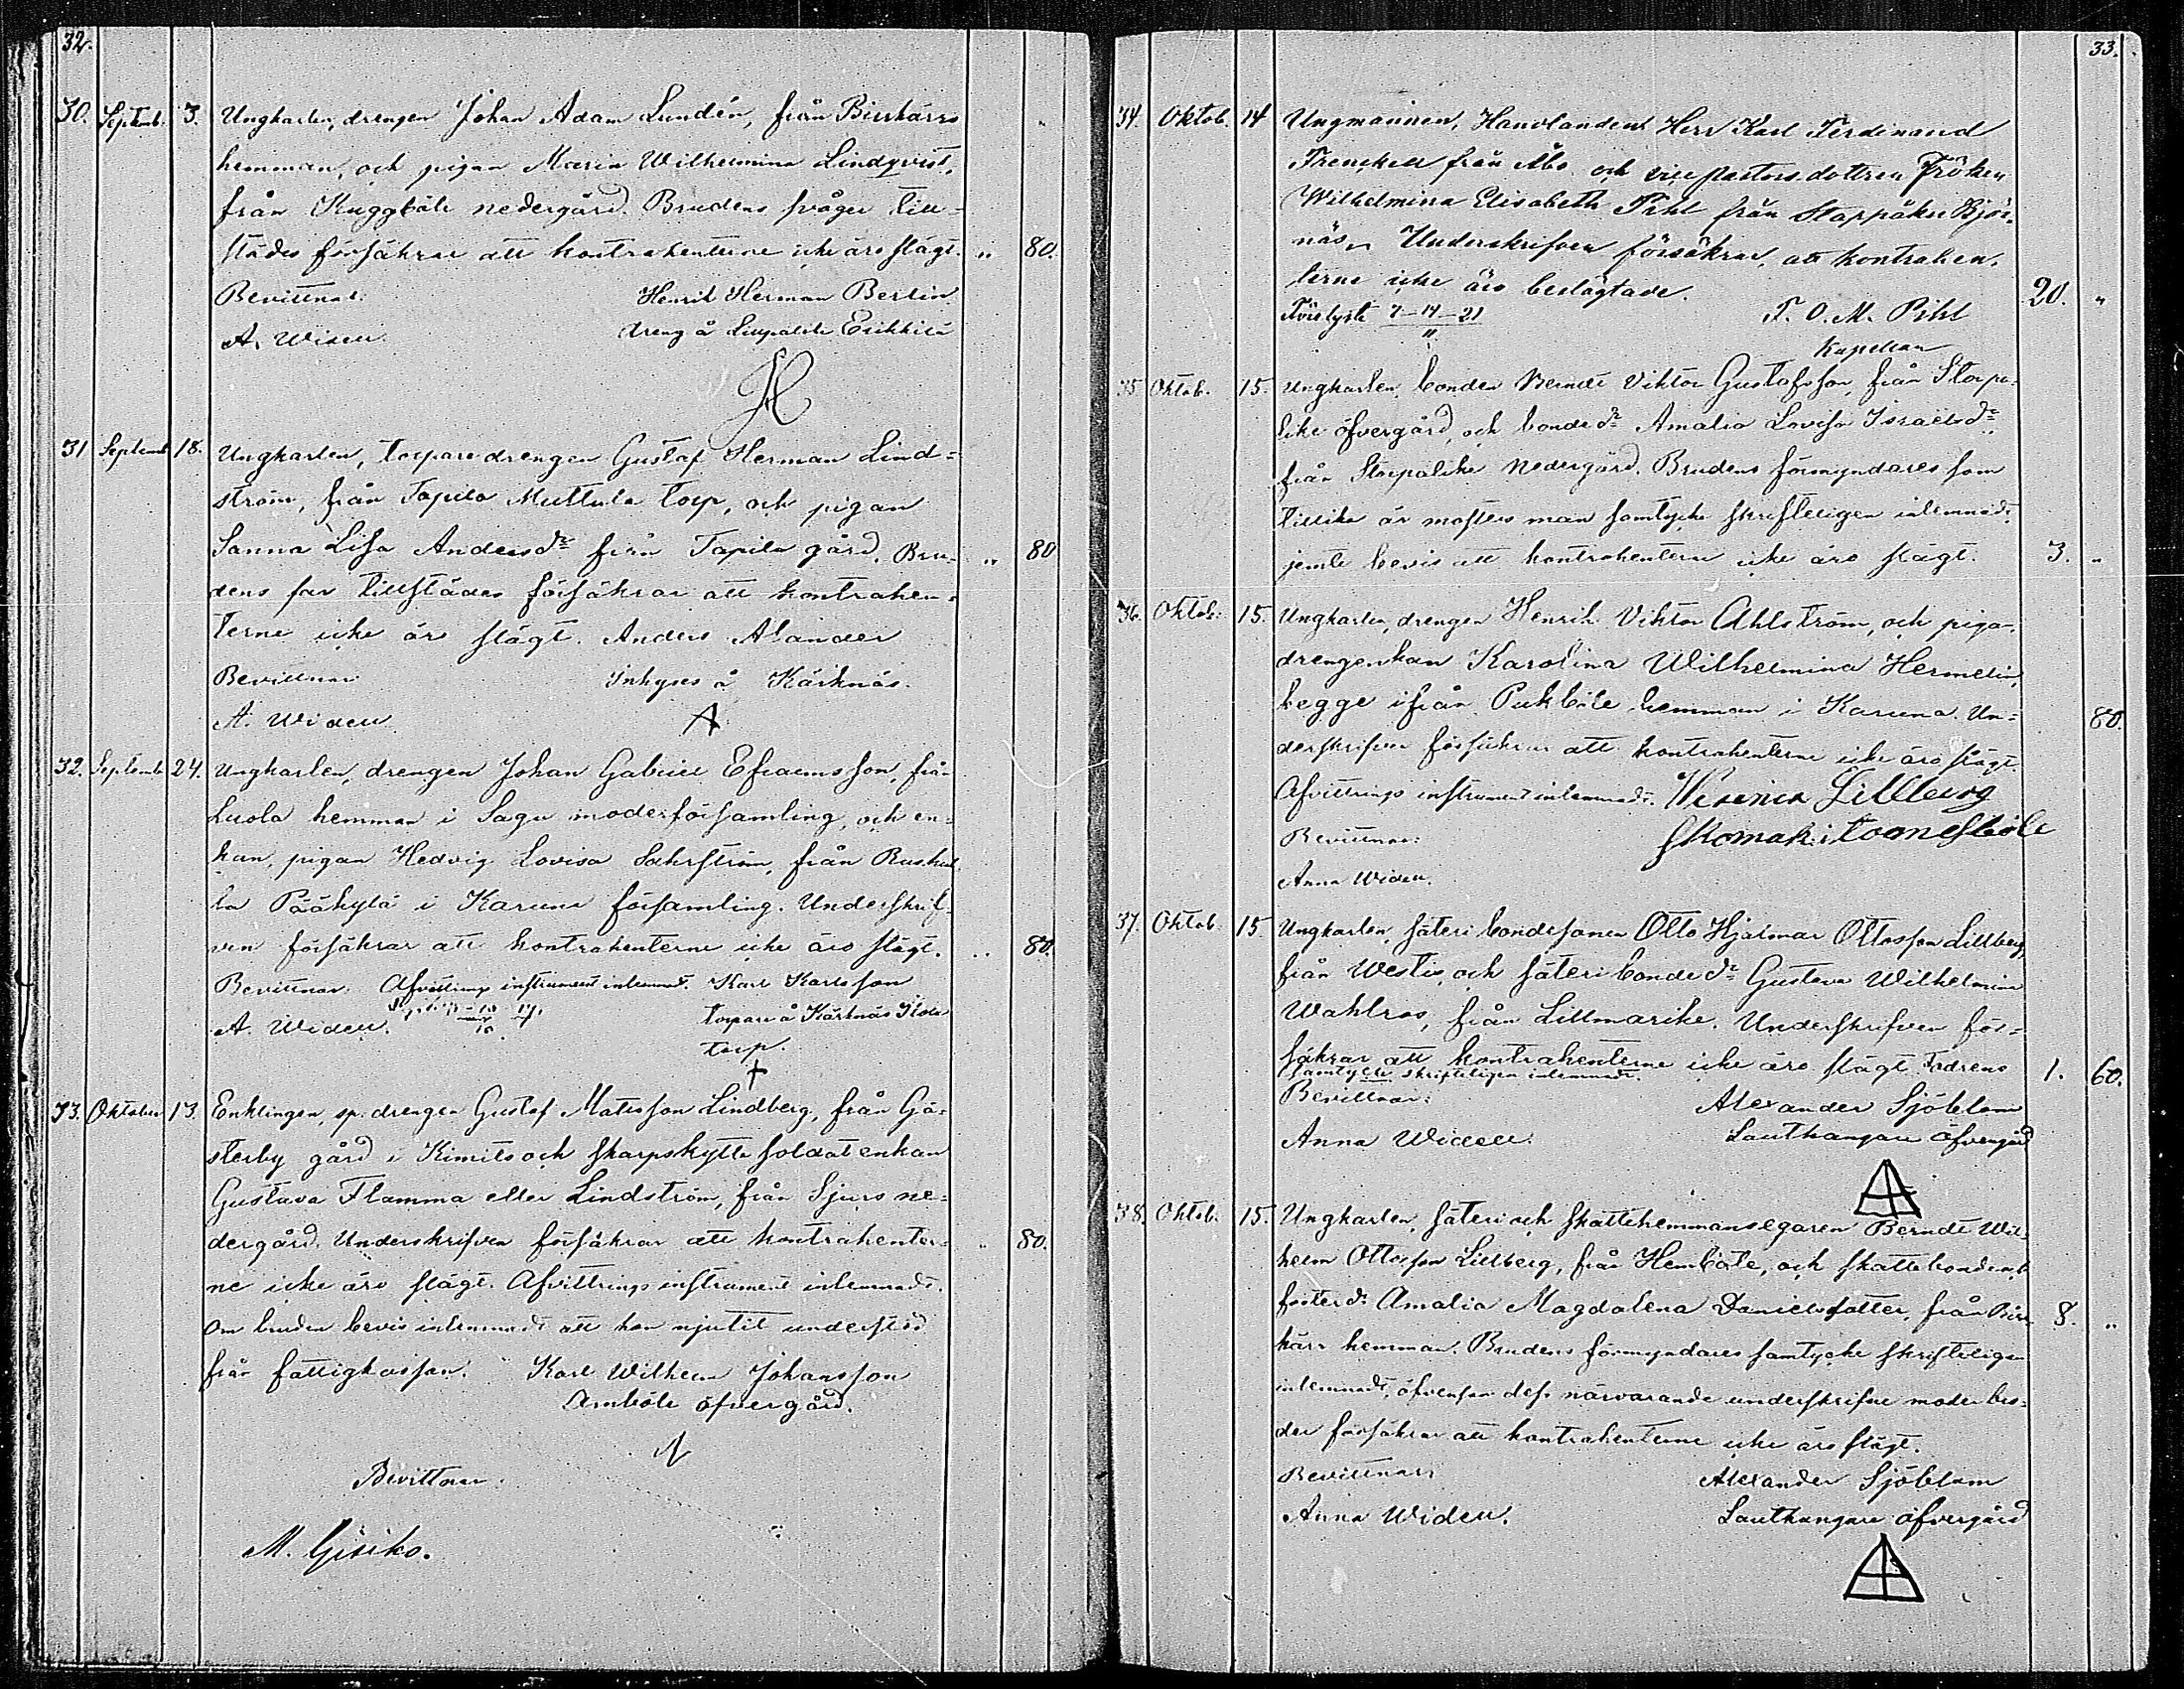 32.
30. Septemb. 3. Ungkarlen, drengen Johan Adam Lundén, från Birkärrs
hemman, och pigan Maria Wilhelmina Lindqvist,
från Kuggböle nedergård. Brudens svåger till-
städes försäkrar att kontrahenterne icke äro slägt. „ 80.
Bevittnar: Henrik Herman Berlin
A. Widen. dreng å Erikkilä
31 Septemb. 18. Ungkarlen, torparedrengen Gustaf Herman Lind=
ström, från Tapila Muttula torp, och pigan
Sanna Lisa Andersdr från Tapila gård. Bru- „ 80
dens far tillstädes försäkrar att kontrahen-
terne icke äro slägt. Anders Alander
Bevittnar Inhyses å Kärknäs.
A. Widen.
32. Septemb. 24. Ungkarlen, drengen Johan Gabriel Efraimsson, från
Luola hemman i Sagu moderförsamling, och en-
kan, pigan Hedvig Lovisa Sahrström, från
la Pääkylä i Karuna församling. Underskrif-
ven försäkrar att kontrahenterne icke äro slägt. „ 80.
Bevittnar. Afvittrings instrument inlemnadt. Karl Karlsson
A. Widen. torpare å Kärknäs
torp.
33. Oktober 13. Enklingen, sp. drengen Gustaf Matsson Lindberg, från Gä-
sterby gård i Kimito och skarpskytte soldatenkan
Gustava Flamma eller Lindström, från Sjurs ne-
dergård. Underskrifven försäkrar att kontrahenter- „ 80.
ne icke äro slägt. Afvittrings instrument inlemnadt.
Om bruden bevis inlemnadt att hon njutit understöd
från fattigkassan. Karl Wilhelm Johansson
Amböle öfvergård.
Bevittnar
M. Gisiko.
33.
34. Oktob. 14 Ungmannen, Handlanden Herr Karl Ferdinand
Trenckell från Åbo och vice pastors dottren Fröken
Wilhelmina Elisabeth Pihl från Stappåker Björ-
näs. Underskrifven försäkrar, att kontrahen-
terne icke äro beslägtade. 20. „
Förelyste 7–14–21 F. O. M. Pihl
Kapellan
35. Oktob. 15. Ungkarlen, bonden Berndt Viktor Gustafsson, från Storpa-
like öfvergård, och bonded:r Amalia Lovisa Israelsd:r
från Storpalike Nedergård. Brudens förmyndares som
tillika är mosters man samtycke skrifteligen inlemnadt,
jemte bevis att kontrahenterne icke äro slägt. 3. „
36. Oktob. 15. Ungkarlen, drengen Henrik Viktor Ahlström, och pigan,
drengenkan Karolina Wilhelmina Hermelin,
begge ifrån Pukböle hemman i Karuna. Un= 80.
derskrifven försäkrar att kontrahenterne icke äro slägt.
Afvittrings instrument inlemnadt. Lillberg
Bevittnar: Skomak.
Anna Widen.
37. Oktob. 15. Ungkarlen, säteri bondesonen Otto Hjalmar Ottosson Lillberg,
från Westis, och säteri bonded:r Gustava Wilhelmina
Wahlros, från Lillmarike. Underskrifven för-
säkrar att kontrahenterne icke äro slägt. Fadrens 1. 60.
samtycke skrifteligen inlemnadt.
Bevittnar: Alexander Sjöblom
Anna Widen. Lauthangare öfvergård
38. Oktob. 15. Ungkarlen, säteri och skattehemmansegaren Berndt Wil-
helm Ottosson Lillberg, från Hemböle, och skattebondens
fosterd:r Amalia Magdalena Danielsdotter, från Birr- 8. „
kärr hemman. Brudens förmyndares samtycke skrifteligen
inlemnadt, äfvensom dess närvarande underskrifne moderbro-
der försäkrar att kontrahenterne icke äro slägt.
Bevittnar Alexander Sjöblom
Anna Widen. Lauthangare öfvergård